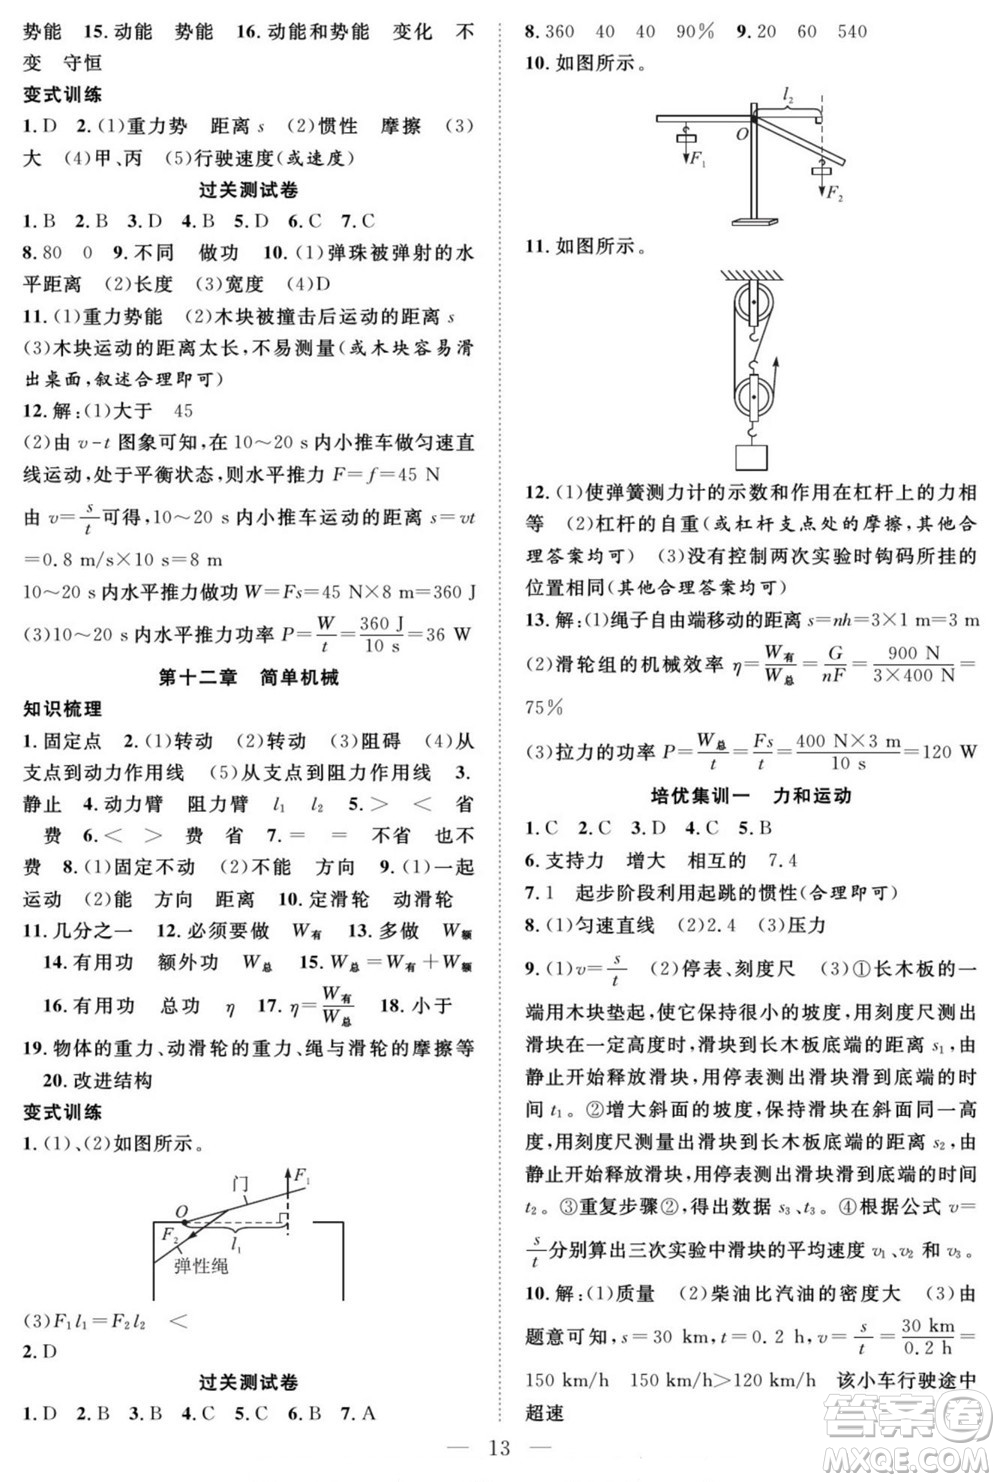 势能　15.动能　势能　16.动能和势能　变化　不
变　守恒
变式训练
1.D　2.(1)重力势　距离s　(2)惯性　摩擦　(3)
大　(4)甲、丙　(5)行驶速度(或速度)
过关测试卷
1.B　2.B　3.D　4.B　5.D　6.C　7.C
8.80　0　9.不同　做功　10.(1)弹珠被弹射的水
平距离　(2)长度　(3)宽度　(4)D
11.(1)重力势能　(2)木块被撞击后运动的距离s
(3)木块运动的距离太长,不易测量(或木块容易滑
出桌面,叙述合理即可)
12.解:(1)大于　45
(2)由v-t图象可知,在10～20 s内小推车做匀速直
线运动,处于平衡状态,则水平推力F=f=45 N
由v=s/t可得,10～20 s内小推车运动的距离s=vt
=0.8 m/s×10 s=8 m
10～20 s内水平推力做功W=Fs=45 N×8 m=360 J
(3)10～20 s内水平推力功率P=W/t=360 J/10 s=36 W
第十二章　简单机械
知识梳理
1.固定点　2.(1)转动　(2)转动　(3)阻碍　(4)从
支点到动力作用线　(5)从支点到阻力作用线　3.
静止　4.动力臂　阻力臂　l₁　l₂　5.>　<　省
费　6.<　>　费　省　7.=　=　不省　也不
费　8.(1)固定不动　(2)不能　方向　9.(1)一起
运动　(2)能　方向　距离　10.定滑轮　动滑轮
11.几分之一　12.必须要做　W有　13.多做　W额
14.有用功　额外功　W总　15.W总=W有+W额
16.有用功　总功　η　17.η=W有/W总　18.小于
19.物体的重力、动滑轮的重力、绳与滑轮的摩擦等
20.改进结构
变式训练
1.(1)、(2)如图所示。
门　F₁
O
F₂　l₁
弹性绳
(3)F₁l₁=F₂l₂　<
2.D
过关测试卷
1.D　2.D　3.B　4.C　5.B　6.B　7.A
8.360　40　40　90%　9.20　60　540
10.如图所示。
l₂
O
F₁
F₂
11.如图所示。
12.(1)使弹簧测力计的示数和作用在杠杆上的力相
等　(2)杠杆的自重(或杠杆支点处的摩擦,其他合
理答案均可)　(3)没有控制两次实验时钩码所挂的
位置相同(其他合理答案均可)
13.解:(1)绳子自由端移动的距离s=nh=3×1 m=3 m
(2)滑轮组的机械效率η=W有/W总=G/nF=900 N/3×400 N=
75%
(3)拉力的功率P=W总/t=Fs/t=400 N×3 m/10 s=120 W
培优集训一　力和运动
1.C　2.C　3.D　4.C　5.B
6.支持力　增大　相互的　7.4
7.1　起步阶段利用起跳的惯性(合理即可)
8.(1)匀速直线　(2)2.4　(3)压力
9.(1)v=s/t　(2)停表、刻度尺　(3)①长木板的一
端用木块垫起,使它保持很小的坡度,用刻度尺测出
滑块在一定高度时,滑块到长木板底端的距离s₁,由
静止开始释放滑块,用停表测出滑块滑到底端的时
间t₁。②增大斜面的坡度,保持滑块在另一高
度,用刻度尺测量出滑块到长木板底端的距离s₂,由
静止开始释放滑块,用停表测出滑块滑到底端的时间
t₂。③重复步骤②,得出数据s₃、t₃。④根据公式v=
s/t分别算出三次实验中滑块的平均速度v₁、v₂和v₃。
10.解:(1)质量　(2)柴油比汽油的密度大　(3)由
题意可知,s=30 km,t=0.2 h,v=s/t=30 km/0.2 h=
150 km/h　150 km/h>120 km/h　该小车行驶途中
超速
答案圈
MXQE.COM
13